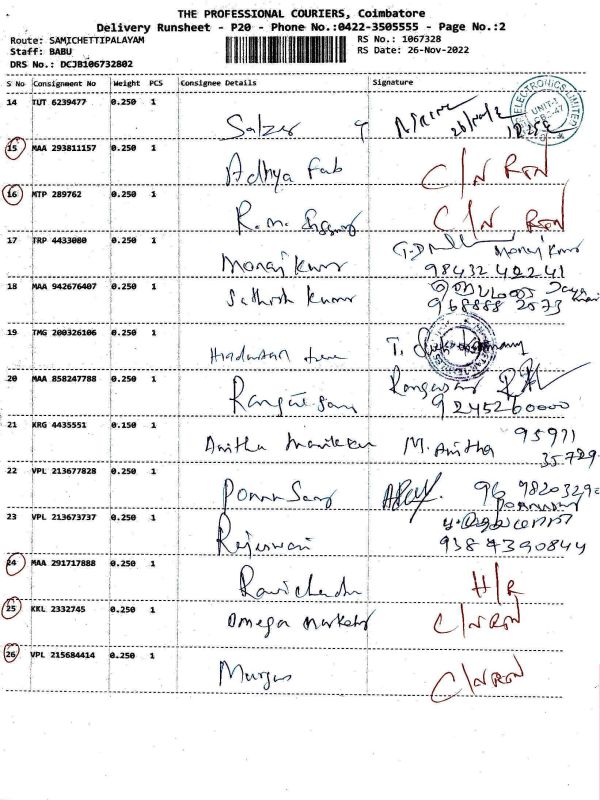 THE PROFESSIONAL COURIERS, Coimbatore
Delivery Runsheet - P20 - Phone No.:0422-3505555 - Page No.:2
Route: SAMICHETTIPALAYAM RS No.: 1067328
Staff: BABU RS Date: 26-Nov-2022
DRS No.: DCJB106732802
S No Consignment No Weight PCS Consignee Details Signature
14 TUT 6239477 0.250 1
Salzer
ELECTRONICS LIMITED
UNIT-1
15 MAA 293811157 0.250 1
Adhya Fab C/N RTN
16 MTP 289762 0.250 1
R.M. C/N RTN
17 TRP 4433080 0.250 1
Monaj Kumar Monaj Kumar
98432 42241
18 MAA 942676407 0.250 1
Sathish Kumar
968888 2573
19 TMG 200326106 0.250 1
Hindustan
20 MAA 858247788 0.250 1
9245260000
21 KRG 4435551 0.150 1
Anitha M. Anitha 95971
35729
22 VPL 213677828 0.250 1
96 9820329
23 VPL 213673737 0.250 1
Rajeswari 9387390844
24 MAA 291717888 0.250 1
Ravichandra H/R
25 KKL 2332745 0.250 1
Omega Marketing C/N RTN
26 VPL 215684414 0.250 1
Murugan C/N RTN